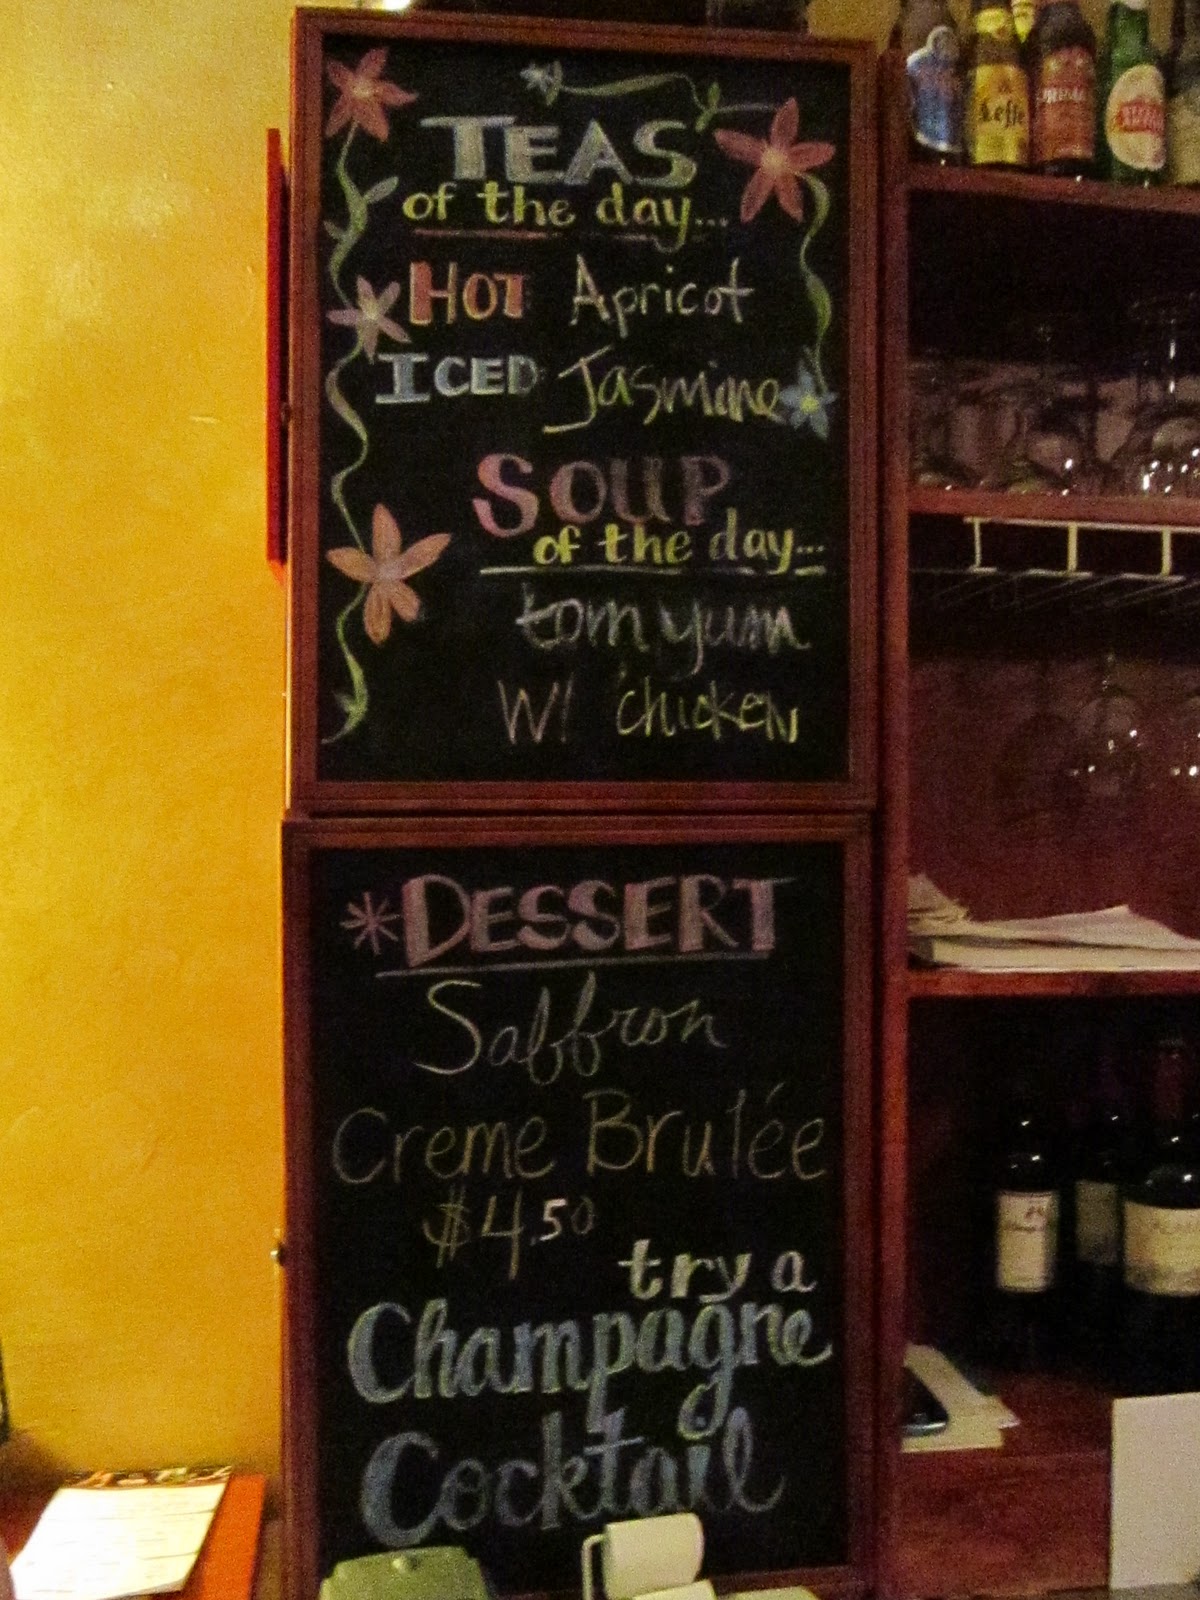 TEAS
of the day...
HOT Apricot
ICED Jasmine
SOUP
of the day...
tom yum
w/ chicken
*DESSERT
Saffron
Creme Brulée
$4.50
try a
Champagne
Cocktail
Leffe